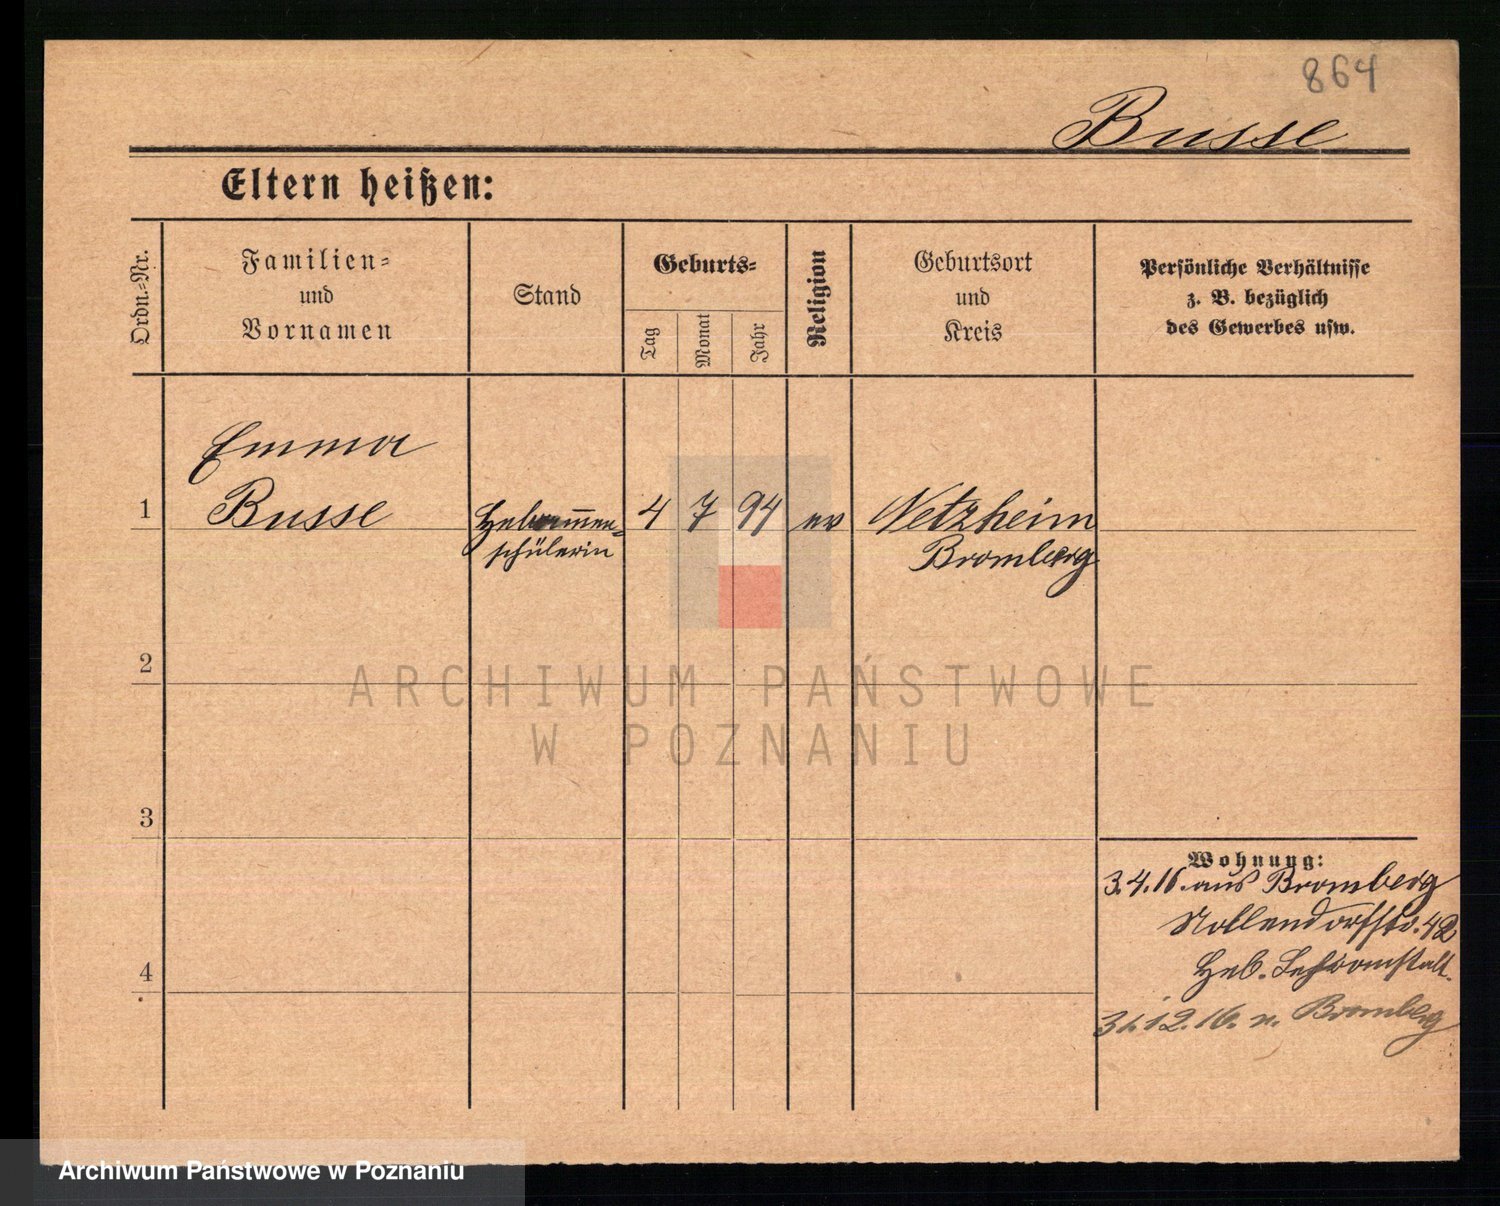 864
Busse
Eltern heißen:
Ordn.-Nr.
Familien-
und
Vornamen
Stand
Geburts-
Tag
Monat
Jahr
Religion
Geburtsort
und
Kreis
Persönliche Verhältnisse
z. B. bezüglich
des Gewerbes usw.
Emma
1 Busse Hebammen- 4 7 94 ev Netzheim
schülerin Bromberg
2
ARCHIWUM PAŃSTWOWE
W POZNANIU
3
Wohnung:
3.4.16. aus Bromberg
Nollendorfstr. 42
4 Heb. Lehranstalt.
31.12.16. n. Bromberg
Archiwum Państwowe w Poznaniu